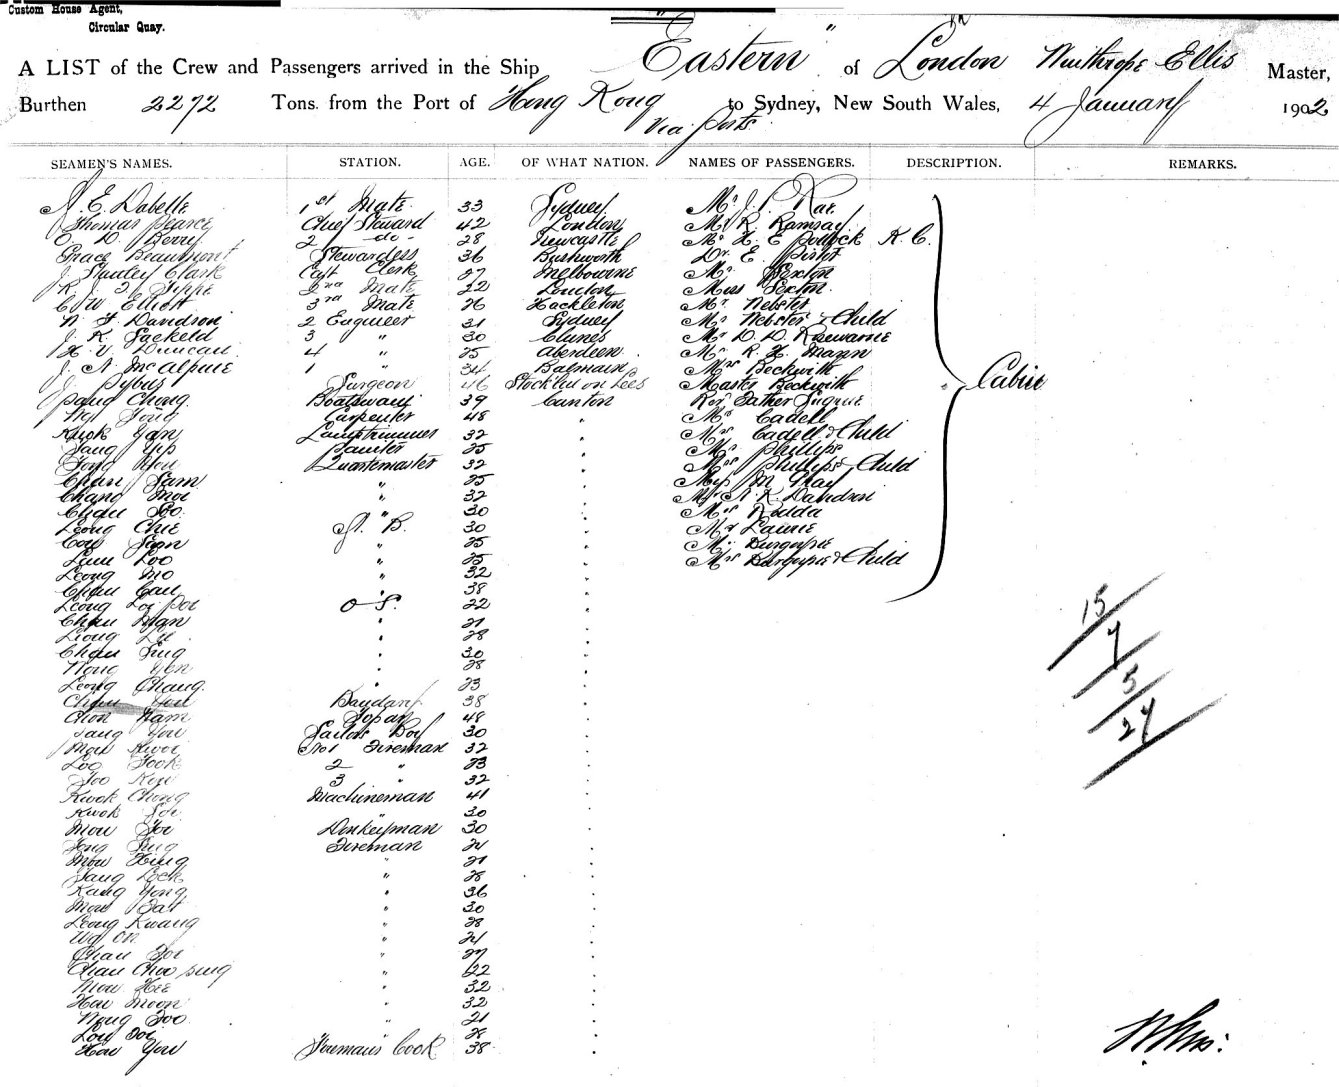 Custom House Agent,
Circular Quay.
A LIST of the Crew and Passengers arrived in the Ship "Eastern" of London Winthrope Ellis Master,
Burthen 2272 Tons from the Port of Hong Kong to Sydney, New South Wales, 4 January 1902
Via Ports
SEAMEN'S NAMES. STATION. AGE. OF WHAT NATION. NAMES OF PASSENGERS. DESCRIPTION. REMARKS.
1st Mate 33 Sydney Mr J. Rae
Thomas Pearce Chief Steward 42 London Mr R Ramsay
O D Berry 2 do 28 Newcastle Mr H. E Pollock K. C.
Grace Beaumont Stewardess 36 Rushworth Dr. E.
J. Clark Capt Clerk 27 Melbourne Mr Sexton
2nd Mate 22 London Miss Sexton
C W Elliott 3rd Mate 26 Hackleton Mr Webster
N F Davidson 2 Engineer 31 Sydney Mrs Webster & Child
J. K. Sackeld 3 " 30 Clunes Mr D. D. Rosewarne
H. V Duncan 4 " 25 Aberdeen Mr R. H. Mann
J. N. McAlpine 1 " 34 Balmain Mrs Beckwith
J. Sybus Surgeon 46 Stockton on Tees Master Beckwith
Chong Boatswain 39 Canton Rev Father
Carpenter 48 " Mr Cadell
Kwok Yan Lamptrimmer 32 " Mrs Cadell & Child
Yang Yip Painter 25 " Mr Phillips
Quartermaster 32 " Mrs Phillips & Child
Chan Sam " 25 " Miss M May
Chang Moi " 32 " Mr N. K. Davidson
Chan So " 30 " Mrs Rodda
Leong Chie A. B. 30 " Mr Laurie
" 25 " Mr
Lum Loo " 25 " Mrs & Child
Cabin
Leong Mo " 32 "
Chan Cau " 38 "
Leong Loy Poi O S. 22 "
Chan " 21 "
Leong Lee " 28 "
Chan Sing " 30 "
Wong Yen " 28 "
Leong Chang. " 23 "
Chan You 38 "
Chon Ham Topas 48 "
Yang You Sailors Boy 30 "
Mow Kwoi No1 Fireman 32 "
Loo Fook 2 " 23 "
3 " 32 "
Kwok Chong Machineman 41 "
Kwok " 30 "
Mow Donkeyman 30 "
Fong Sing Fireman 24 "
Mow Hing " 21 "
Yang " 28 "
Kang Yong " 36 "
Mow Fat " 30 "
Leong Kwang " 28 "
Wg On " 24 "
Chan " 27 "
Chan Choo sing " 22 "
Mow Hee " 32 "
How Moon " 32 "
Wong Foo " 21 "
" 28 "
How You Firemans Cook 38 "
15
7
5
27